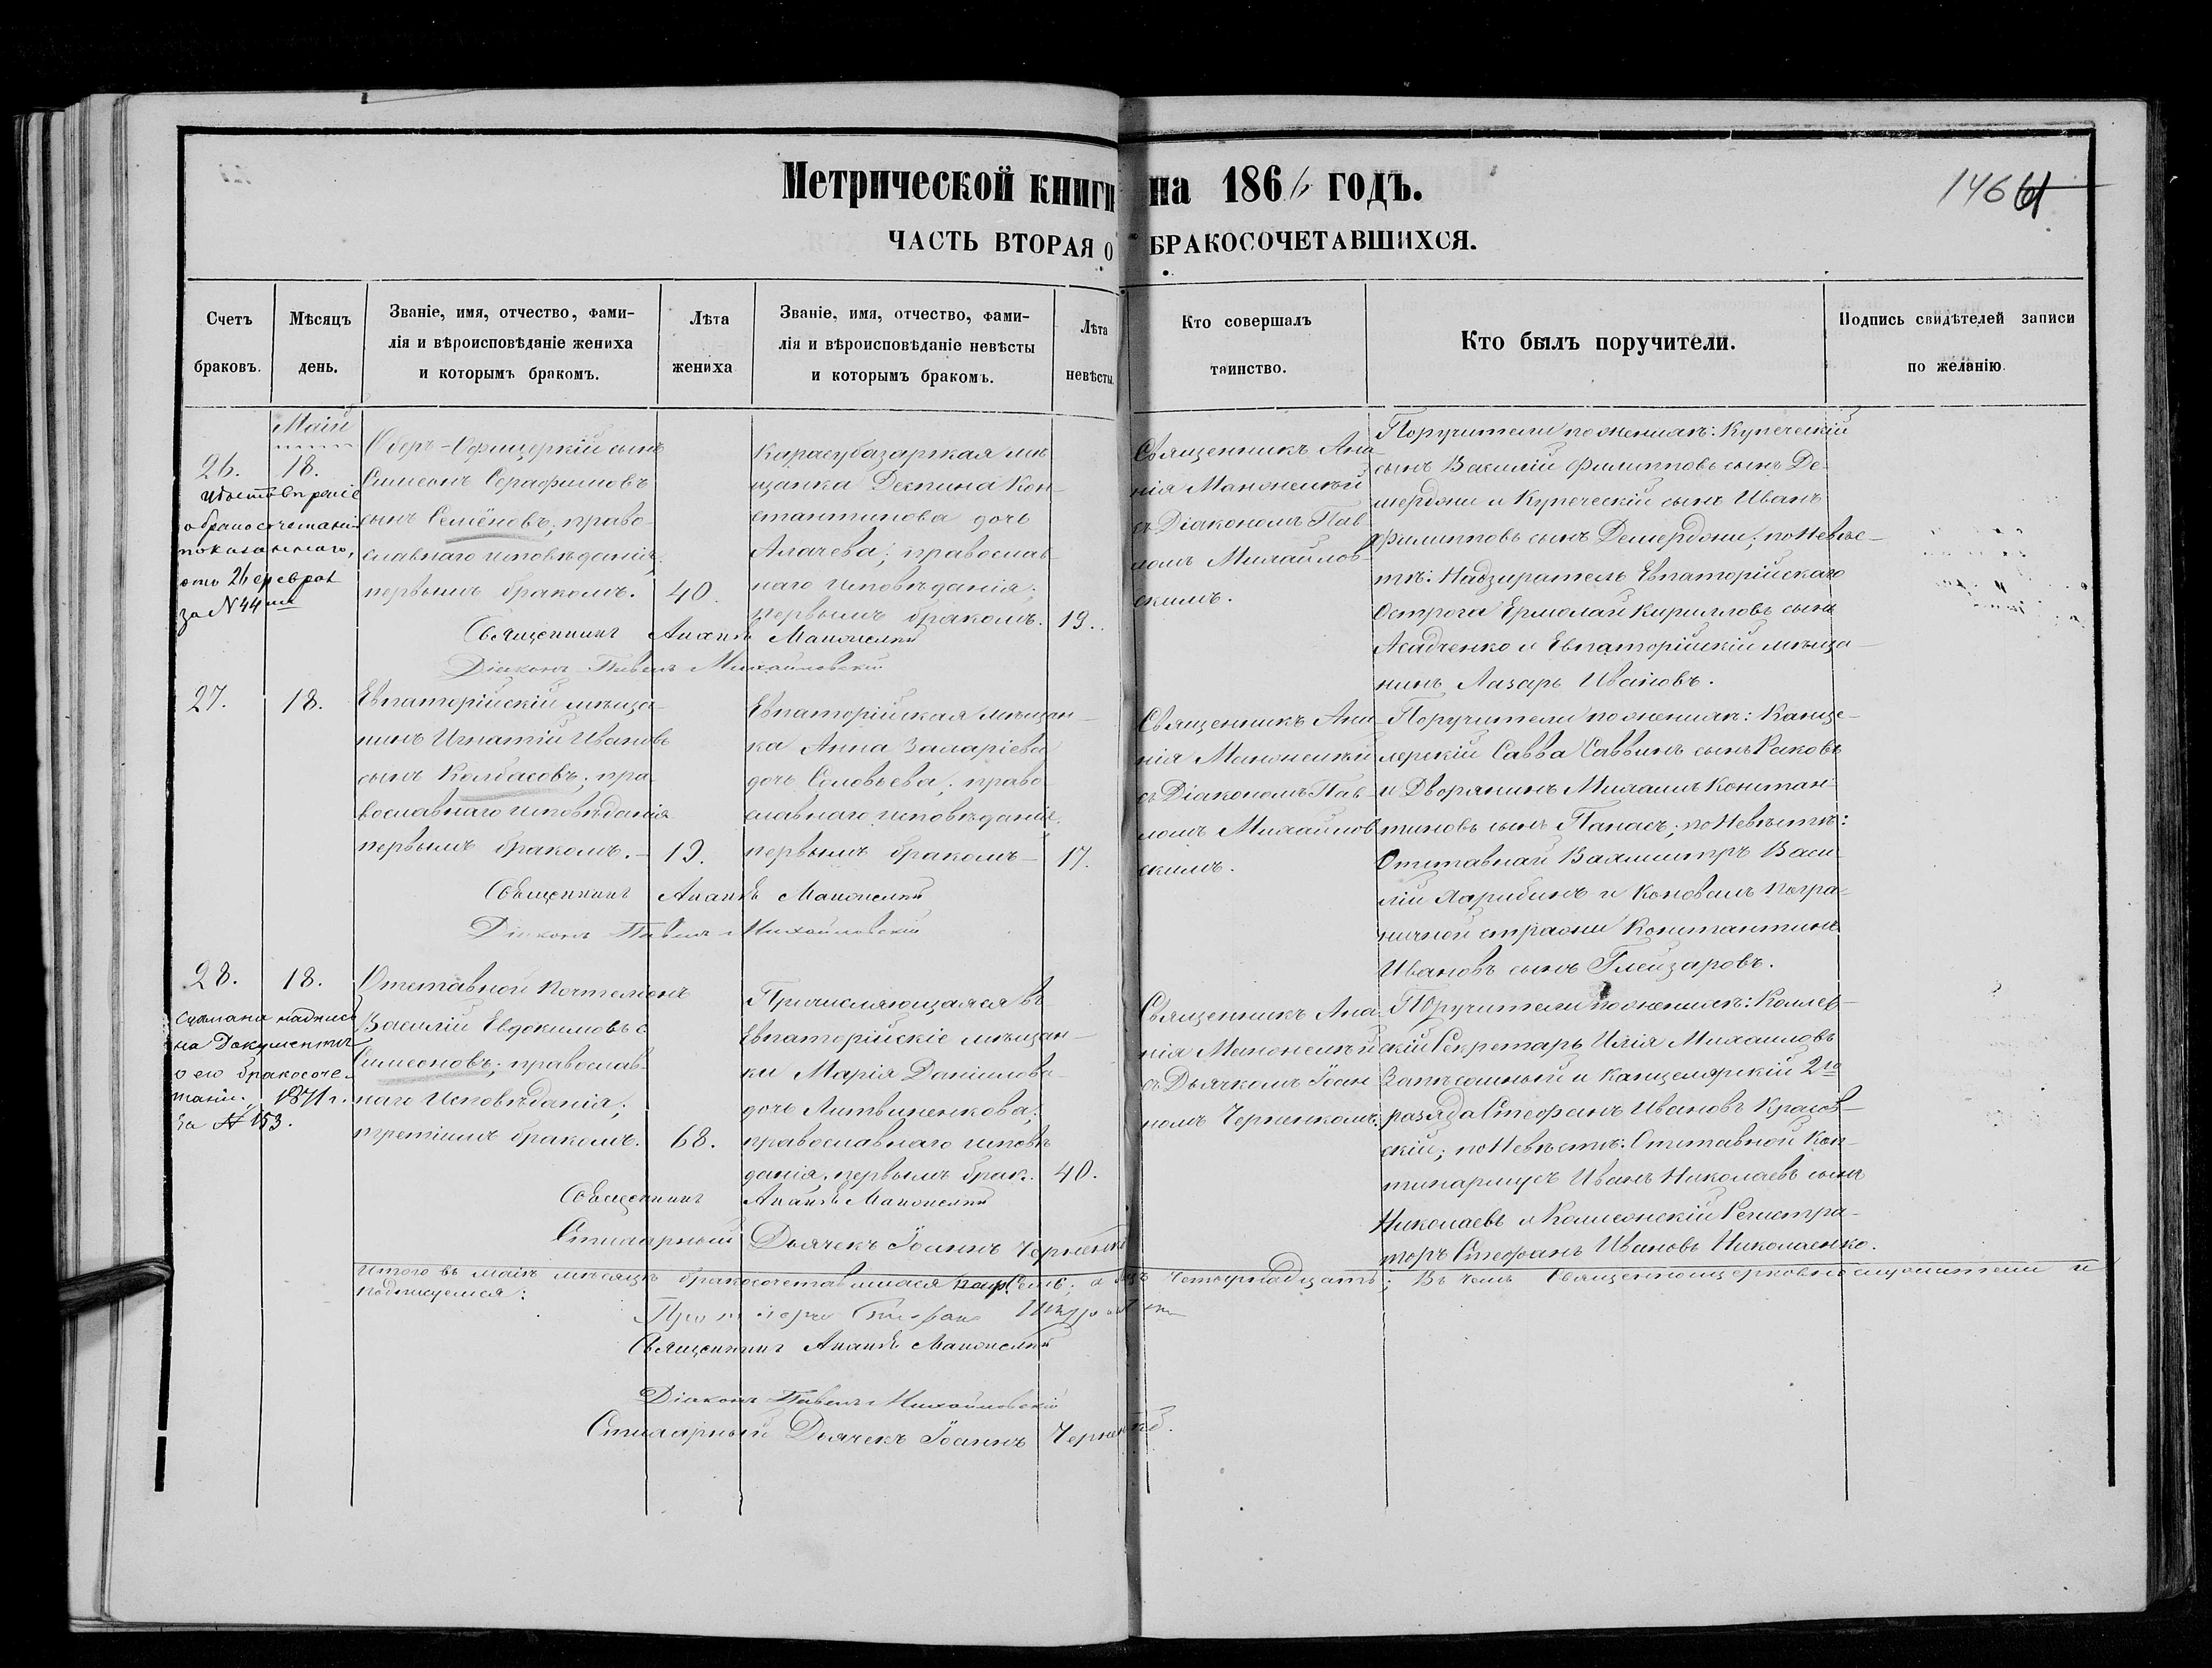 Метрической книги на 1866 годъ.
146 61
ЧАСТЬ ВТОРАЯ о БРАКОСОЧЕТАВШИХСЯ.
Счетъ браковъ.
Мѣсяцъ день.
Званіе, имя, отчество, фами-
лія и вѣроисповѣданіе жениха
и которымъ бракомъ.
Лѣта жениха
Званіе, имя, отчество, фами-
лія и вѣроисповѣданіе невѣсты
и которымъ бракомъ.
Лѣта невѣсты.
Кто совершалъ
таинство.
Кто былъ поручители.
Подпись свидѣтелей записи
по желанію.
Май
26.
18.
о бракосочетаніи
показаннаго,
за N 44
Оберъ-Офицерскій сынъ
Симеонъ Серафимовъ
сынъ Семёновъ, право-
славнаго исповѣданія,
первымъ бракомъ.
40.
Карасубазарская мѣ-
щанка Деспина Кон-
стантинова дочь
Алачева; православ-
наго исповѣданія,
первымъ бракомъ.
19.
Священникъ Ана-
нія Маножскій
съ Діакономъ Пав-
ломъ Михайлов-
скимъ.
Поручители по женихѣ: Купеческій
сынъ Василій Филипповъ сынъ Де-
мерджи и Купеческій сынъ Иванъ
Филипповъ сынъ Демерджи; по Невѣс-
тѣ: Надзиратель Евпаторійскаго
Острога Ермолай Кирилловъ сынъ
и Евпаторійскій мѣща-
нинъ Лазарь Ивановъ.
Священникъ Ананія
Діаконъ Павелъ Михайловскій
27.
18.
Евпаторійскій мѣща-
нинъ Игнатій Ивановъ
сынъ Колбасовъ; пра-
вославнаго исповѣданія
первымъ бракомъ.
19.
Евпаторійская мѣщан-
ка Анна Захаріева
дочь Соловьева; право-
славнаго исповѣданія,
первымъ бракомъ
17.
Священникъ Ана-
нія
съ Діакономъ Пав-
ломъ Михайлов-
скимъ.
Поручители по женихѣ: Канце-
лярскій Савва Саввинъ сынъ Раковъ
и Дворянинъ Михаилъ Констан-
тиновъ сынъ Панасъ; по Невѣстѣ:
Отставной Вахмистръ Васи-
лій Ларибинъ и Коновалъ погра-
ничной стражи Константинъ
Ивановъ сынъ Глейзаровъ.
Священникъ Ананія
Діаконъ Павелъ Михайловскій
28.
18.
Сдѣлана надпись
на Документѣ
о его бракосоче-
таніи. 1871 г.
за № 153.
Отставной Почталіонъ
Василій Евдокимовъ с.
Симеоновъ; православ-
наго Исповѣданія;
третьимъ бракомъ.
68.
Причисляющаяся въ
Евпаторійскіе мѣщан-
ки Марія Даніилова
дочь Литвиненкова;
православнаго исповѣ-
данія, первымъ брак.
40.
Священникъ Ана-
нія
съ Дьячкомъ Іоан-
номъ Черненкомъ.
Поручители по женихѣ: Коллеж-
скій Секретарь Илія Михаиловъ
и Канцелярскій 2го
разряда Стефанъ Ивановъ Красов-
скій; по Невѣстѣ: Отставной Кон-
тинармусъ Иванъ Николаевъ сынъ
Николаевъ и Коллежскій Регистра-
торъ Стефанъ Ивановъ Николаенко.
Священникъ Ананія
Стихарный Дьячекъ Іоаннъ Черненко
Итого въ Маѣ мѣсяцѣ бракосочетавшихся паръ семь; а лицъ четырнадцать; въ чемъ Священноцерковнослужители и
подписуемся:
Протоіерей Стефанъ
Священникъ Ананія
Діаконъ Павелъ Михайловскій
Стихарный Дьячекъ Іоаннъ Черненко.